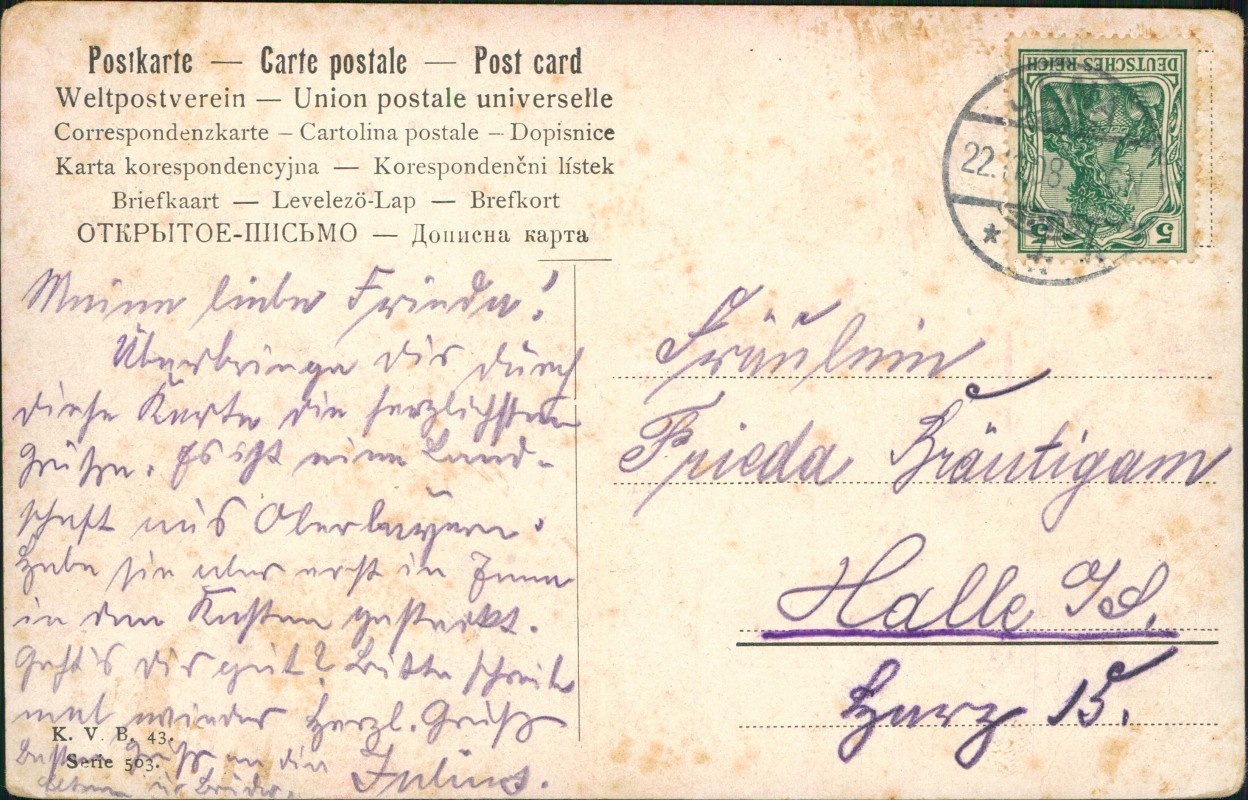 Postkarte — Carte postale — Post card
Weltpostverein — Union postale universelle
Correspondenzkarte – Cartolina postale – Dopisnice
Karta korespondencyjna — Korespondenčni lístek
Briefkaart — Levelezö-Lap — Brefkort
ОТКРЫТОЕ-ПИСЬМО — Дописна карта
DEUTSCHES REICH
5 5
22.
08
Meine liebe Frieda!
Überbringe dir durch
diese Karte die herzlichsten
Grüße. Es ist eine Land-
schaft aus Oberbayern.
Habe sie aber erst in
in den Kasten gesteckt.
Geht's dir gut? Bitte schreib
mal wieder Herzl. Gruß
Besten Gruß an die Julius.
Eltern u. Brüder.
K. V. B. 43.
Serie 503.
Fräulein
Frieda Bräutigam
Halle a/S.
Harz 15.